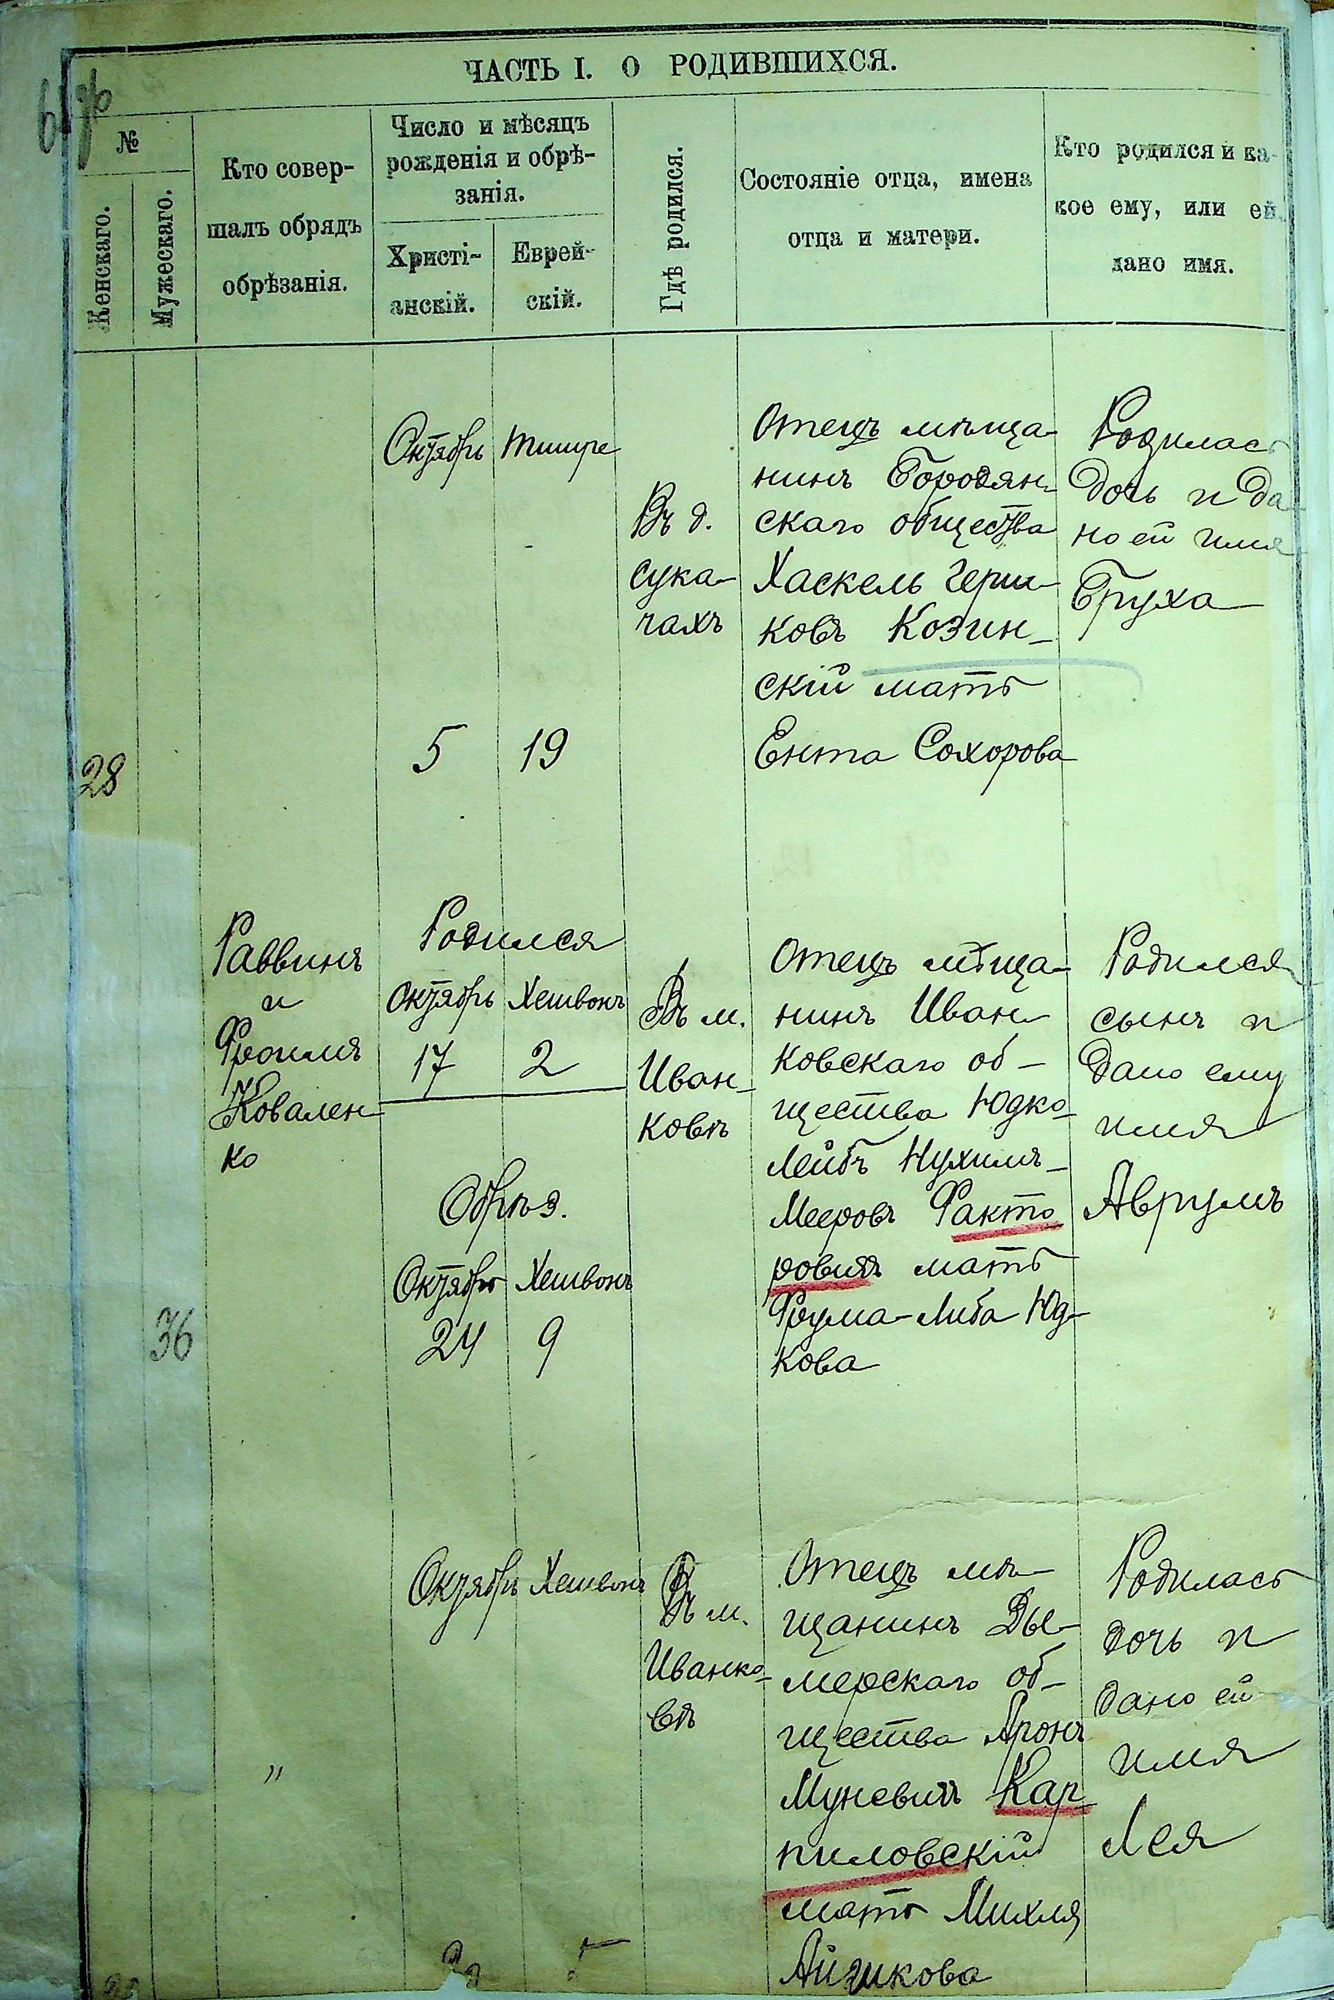 ЧАСТЬ I. О РОДИВШИХСЯ.
№
Женскаго.
Мужескаго.
Кто совер-
шалъ обрядъ
обрѣзанія.
Число и мѣсяцъ
рожденія и обрѣ-
занія.
Христі-
анскій.
Еврей-
скій.
Гдѣ родился.
Состояніе отца, имена
отца и матери.
Кто родился и ка-
кое ему, или ей
дано имя.
28
Октябрь
5
Тишре
19
Въ д.
Сука-
чахъ
Отецъ мѣща-
нинъ Бородян-
скаго общества
Хаскель Герш-
ковъ Козин-
скій мать
Ента Сохорова
Родилась
дочь и да
но ей имя
Бруха
36
Раввинъ
и
Фроимъ
Ковален-
ко
Родился
Октябрь Хешвонъ
17 2
Обрѣз.
Октября Хешвонъ
24 9
Въ м.
Иван-
ковѣ
Отецъ мѣща-
нинъ Иван-
ковскаго об-
щества Юдко-
Лейбъ Нухимъ-
Мееровъ Факто
ровичъ мать
Фрума-Либа Юд-
кова
Родился
сынъ и
дано ему
имя
Аврумъ
"
Октябрь Хешвонъ
Въ м.
Иванко-
вѣ
Отецъ мѣ-
щанинъ Ды-
мерскаго об-
щества Аронъ
Муневичъ Кар
пиловскій
мать Михля
Айзикова
Родилась
дочь и
дано ей
имя
Лея